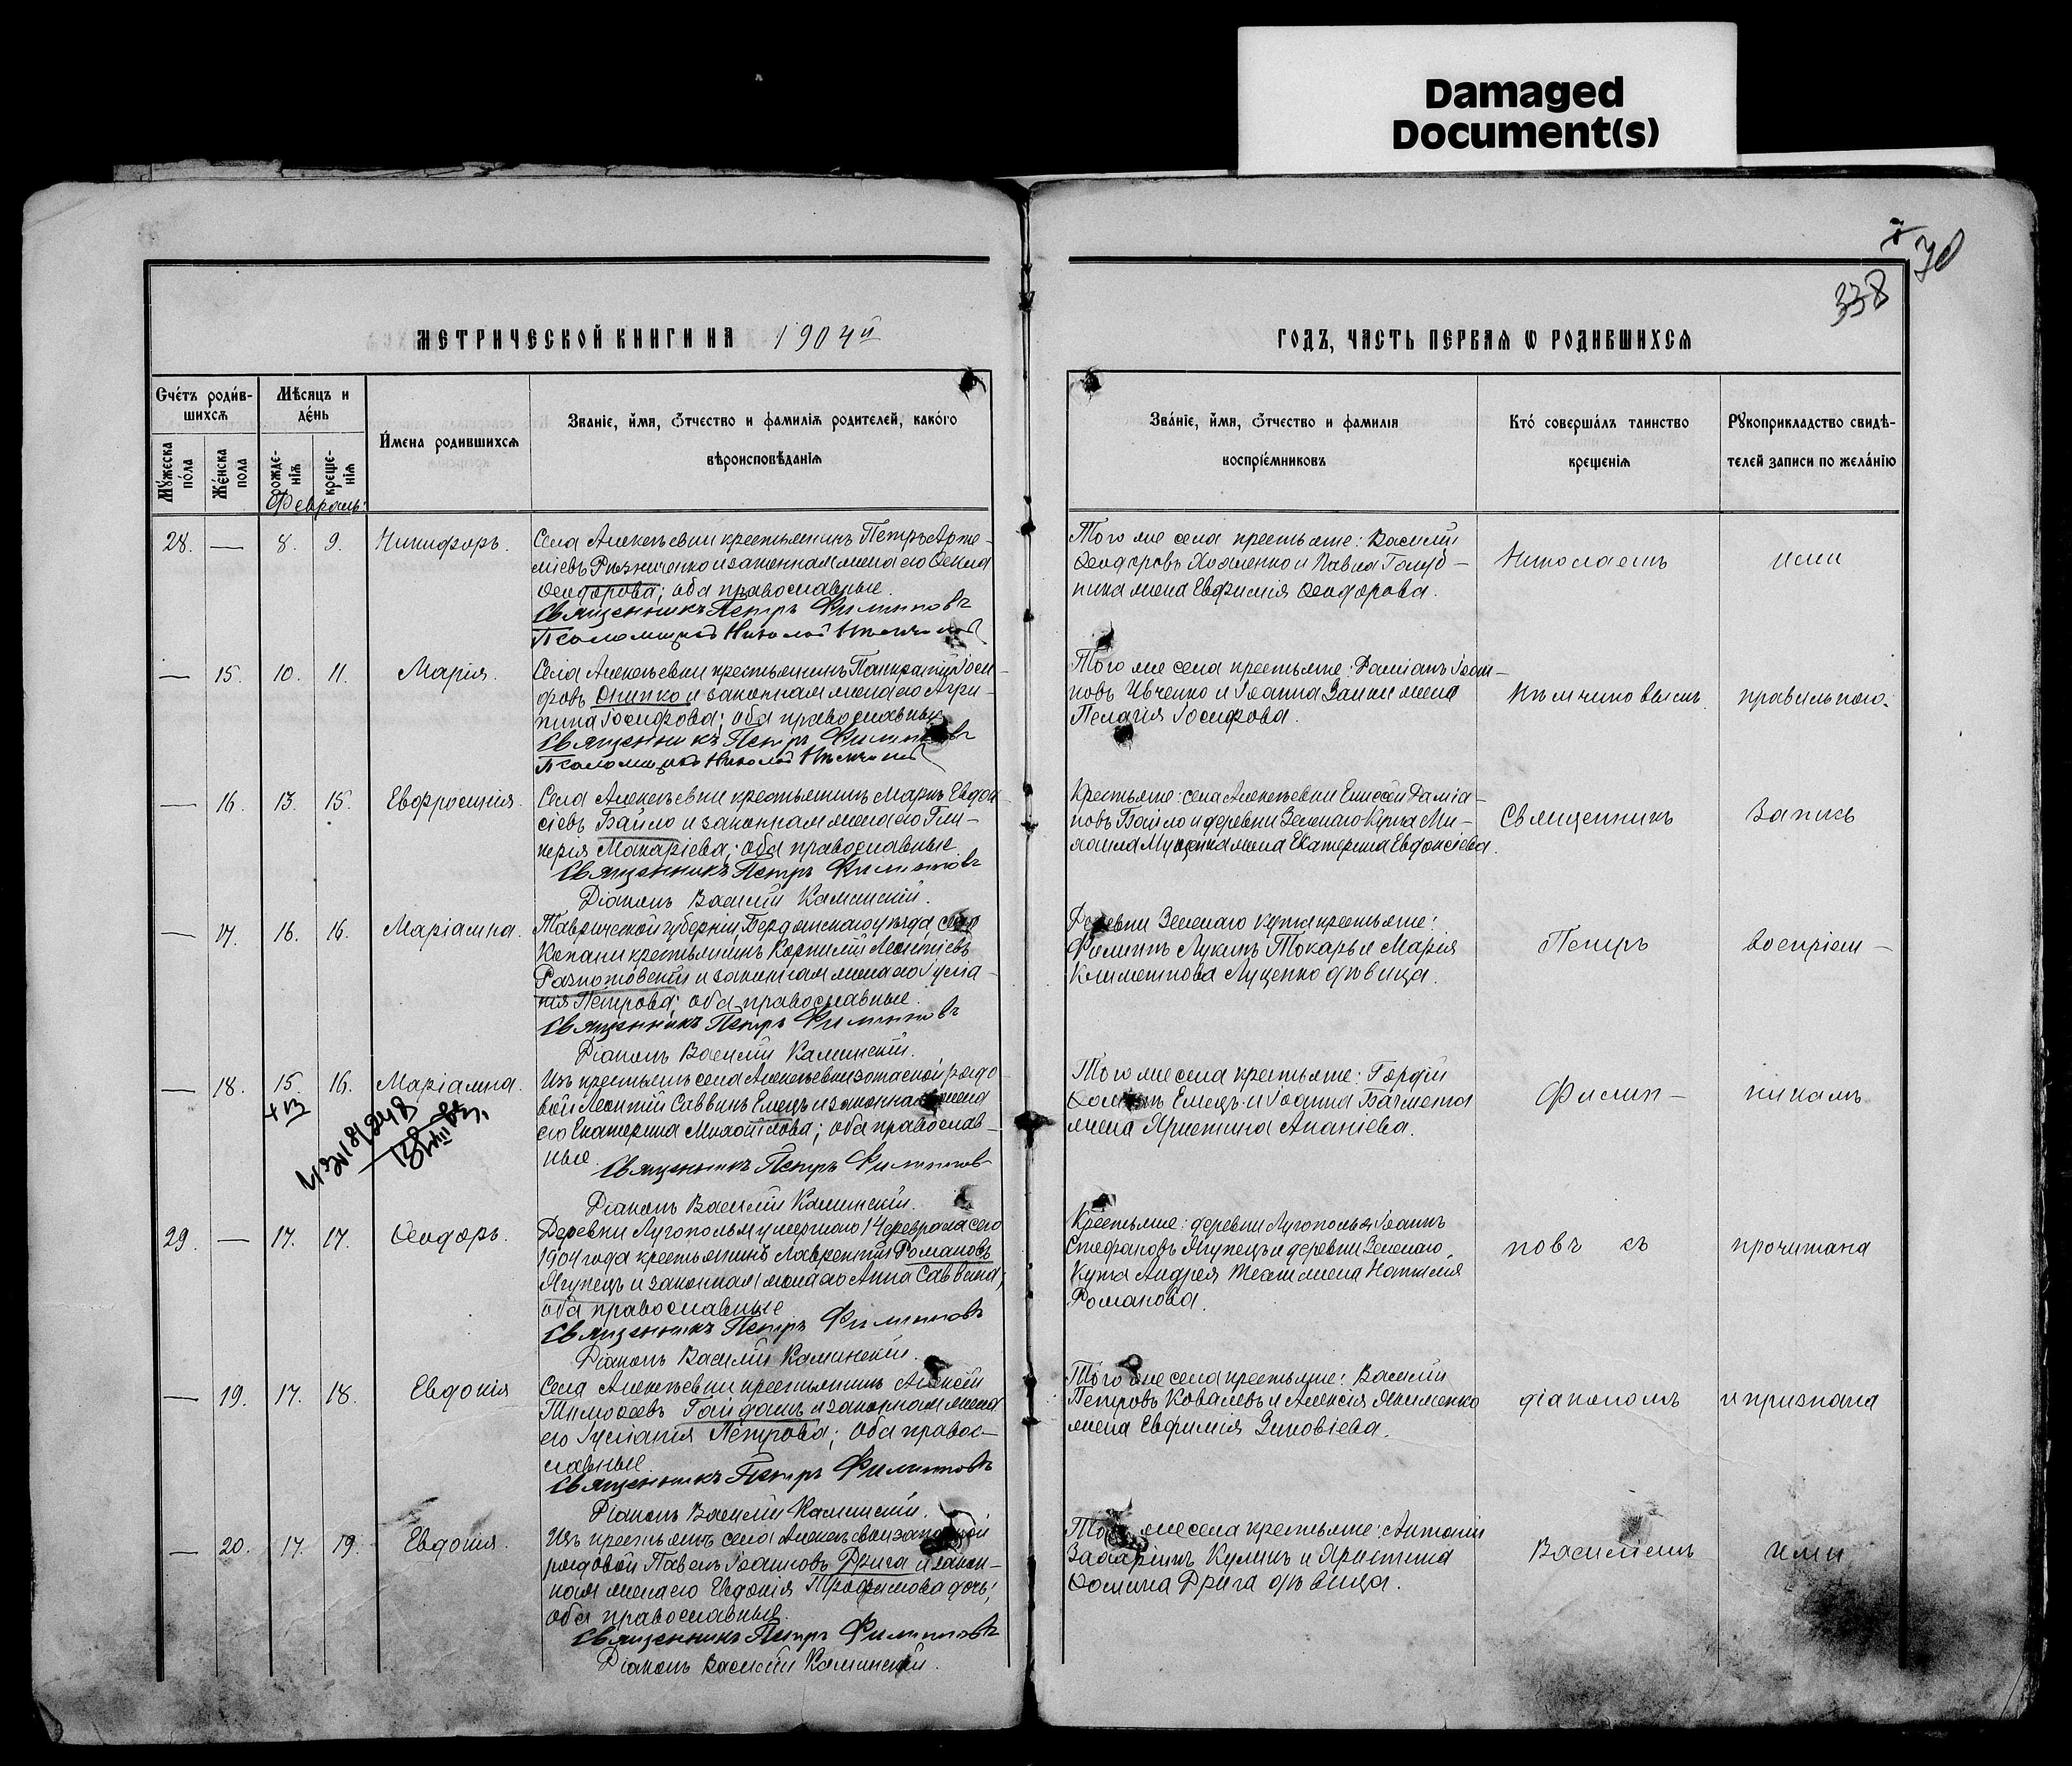 Damaged
Document(s)
30
338
МЕТРИЧЕСКОЙ КНИГИ НА 1904й
ГОДЪ, ЧАСТЬ ПЕРВАЯ Ѡ РОДИВШИХСЯ
Счетъ родив-
шихся
Мѣсяцъ и
день
Имена родившихся
Званіе, имя, отчество и фамилія родителей, какого
вѣроисповѣданія
Мужеска
пола
Женска
пола
рожде-
нія
креще-
нія
Февраль:
Званіе, имя, отчество и фамилія
воспріемниковъ
Кто совершалъ таинство
крещенія
Рукоприкладство свидѣ-
телей записи по желанію
28. — 8. 9. Никифоръ.
Села Алексѣевки крестьянинъ Петръ Арте-
міевъ Рѣзниченко и законная жена его Ѳекла
Ѳеодорова; оба православные.
Священникъ Петръ Филипповъ
Псаломщикъ Николай
Того же села крестьяне: Василій
Ѳеодоровъ и Павла Голуб-
ника жена Евфимія Ѳеодорова.
Николаемъ
— 15. 10. 11. Марія.
Села Алексѣевки крестьянинъ Панкратій Іоси-
фовъ Онипко и законная жена его Агри-
пина Іосифова; оба православные
Священникъ Петръ Филипповъ
Псаломщикъ Николай
Того же села крестьяне: Даміанъ Іоан-
новъ Ивченко и Іоанна Заики жена
Пелагія Іосифова.
правильною.
— 16. 13. 15. Евфросинія.
Села Алексѣевки крестьянинъ Маркъ Евдок-
сіевъ Байло и законная жена его Гли-
керія Макаріева; оба православные
Священникъ Петръ Филипповъ
Діаконъ Василій Калинскій.
Крестьяне: села Алексѣевки Елисей Даміа-
новъ Байло и деревни Зеленаго Кута Ми-
хаила жена Екатерина Евдоксіева.
Священникъ
Запись
— 17. 16. 16. Маріамна.
Таврической губерніи Бердянскаго уѣзда села
Копани крестьянинъ Корнилій Леонтіевъ
и законная жена его Іуліа-
нія Петрова; оба православные.
Священникъ Петръ Филипповъ
Діаконъ Василій Калинскій.
Деревни Зеленаго Кута крестьяне:
Филиппъ Лукинъ Токарь и Марія
Климентова Луценко дѣвица.
Петръ
воспріем-
— 18. 15. 16. Маріамна.
Изъ крестьянъ села Алексѣевки запасной рядо-
вой Леонтій Саввинъ Емецъ и законная жена
его Екатерина Михайлова; оба православ-
ные. Священникъ Петръ Филипповъ
Діаконъ Василій Калинскій.
Того же села крестьяне: Гордій
Ѳоминъ Емецъ и Іоанна
жена Христина Ананіева.
Филип-
никамъ
29. — 17. 17. Ѳеодоръ.
Деревни Лугополья умершаго 14 февраля сего
1904 года крестьянинъ Лаврентій Романовъ
Ягупецъ и законная жена его Анна Саввина;
оба православные
Священникъ Петръ Филипповъ
Діаконъ Василій Калинскій.
Крестьяне: деревни Лугополья Іоаннъ
Стефановъ Ягупецъ и деревни Зеленаго
Кута Андрея жена Наталія
Романова.
повъ съ
прочитана
— 19. 17. 18. Евдокія
Села Алексѣевки крестьянинъ Алексій
Тимоѳеевъ Гайдашъ и законная жена
его Іуліанія Петрова; оба правос-
лавные.
Священникъ Петръ Филипповъ
Діаконъ Василій Калинскій.
Того же села крестьяне: Василій
Петровъ Ковалевъ и Алексія Якименко
жена Евфимія Зиновіева.
діакономъ
и признана
— 20. 17. 19. Евдокія.
Изъ крестьянъ села Алексѣевки запасной
рядовой Павелъ Іоанновъ Дрига и закон-
ная жена его Евдокія Трофимова дочь;
оба православные.
Священникъ Петръ Филипповъ
Діаконъ Василій Калинскій.
Того же села крестьяне: Антоній
Захаріинъ Куликъ и Христина
Ѳомина Дрига дѣвица.
Василіемъ
ими